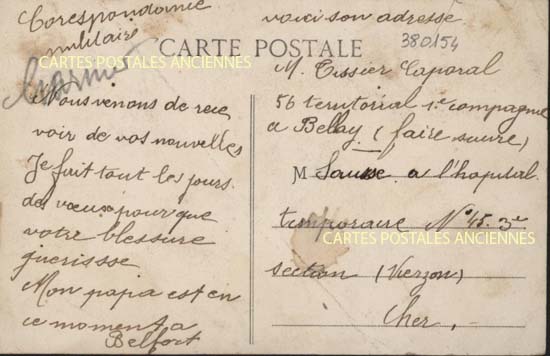 Correspondance
militaire
CARTE POSTALE
CARTES POSTALES ANCIENNES
Nous venons de rece
voir de vos nouvelles
Je fait tout les jours
des vœux pour que
votre blessure
guerissse
Mon papa est en
ce moment a
Belfort
voici son adresse
380154
M. Tissier Caporal
56 territorial 1e compagnie
a Bellay (faire suivre)
M Sausse a l'hopital
temporaire No 45. 3e
CARTES POSTALES ANCIENNES
section (Vierzon)
Cher.